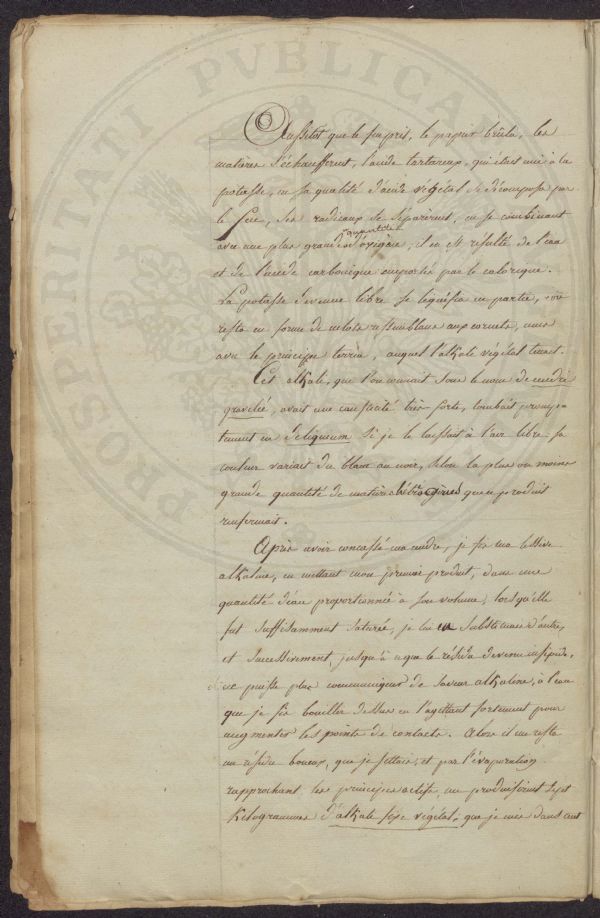 PROSPERITATI PUBLICAE
Aussitot que le feu prit, le papier brûla, les
matières s'échaufferent, l'acide tartareux, qui étais unie à la
potasse, en sa qualité d'acide végétal se décomposa par
le feu, ses radicaux se séparerent, en se combinant
quantité
avec une plus grande d'oxigène, il en est résulté de l'eau
et de l'acide carbonique emportés par le calorique.
La potasse devenue libre se liquéfia en partie,
resta en forme de culots ressemblans aux cornets, unie
avec le principe terreux, auquel l'alkale végétal tenait.
Cet alkale, que l'on connait sous le nom de cendre
gravelée, avait une causticité très forte, tombait promp-
tement en deliqueum si je le laissait à l'air libre sa
couleur variait du blanc au noir, selon la plus ou moins
grande quantité de matière hétérogènes que ce produit
renfermait.
Après avoir concassé ma cendre, je fis ma lessive
alkaline, en mettant mon premier produit, dans une
quantité d'eau proportionnée à son volume, lorsqu'elle
fut suffisamment saturée, je lui en substituais d'autre,
et successivement, jusqu'à ce que le résidu devenu insipide,
ne puisse plus communiquer de saveur alkaline, à l'eau
que je fis bouillir dessus en l'agittant fortement pour
augmenter les points de contacts. Alors il me resta
un résidu boueux, que je jettais, et par l'évaporation
rapprochant les principes actifs, me produisirent sept
Kilogrammes d'alkale fixe végétal, que je mis dans cent